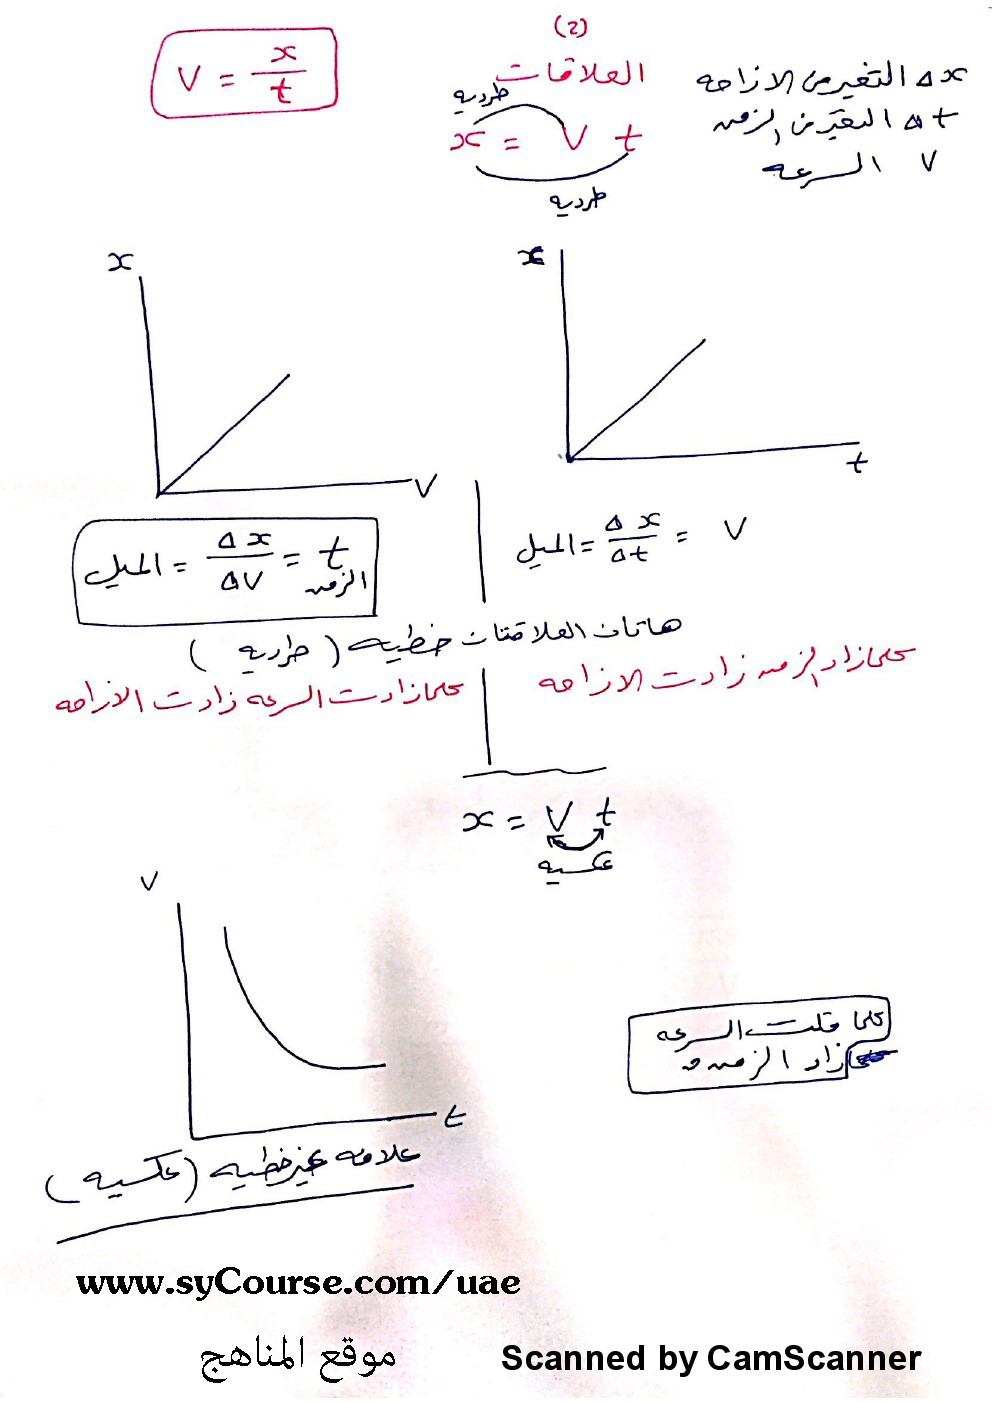 (2)
V = x / t
العلاقات
طرديه
x = V t
طرديه
Δx التغير من الازاحه
Δt التغير من الزمن
V السرعه
x
V
x
t
الميل = Δx / ΔV = t
الزمن
الميل = Δx / Δt = V
هاتان العلاقتان خطيه ( طرديه )
كلما زاد الزمن زادت الازاحه
كلما زادت السرعه زادت الازاحه
x = V t
عكسيه
V
t
كلما قلت السرعه
زاد الزمن
علاقه غير خطيه (عكسيه)
www.syCourse.com/uae
موقع المناهج
Scanned by CamScanner